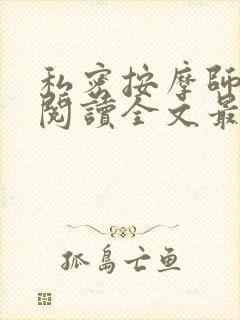 私密按摩師
閱讀全文最
孤島亡鱼